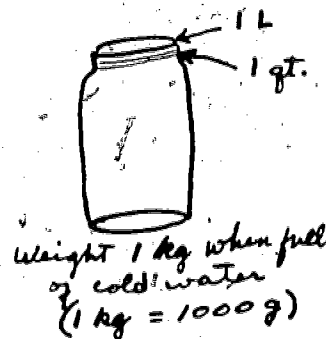 1 L
1 qt.
Weight 1 kg when full
of cold water
(1 kg = 1000 g)